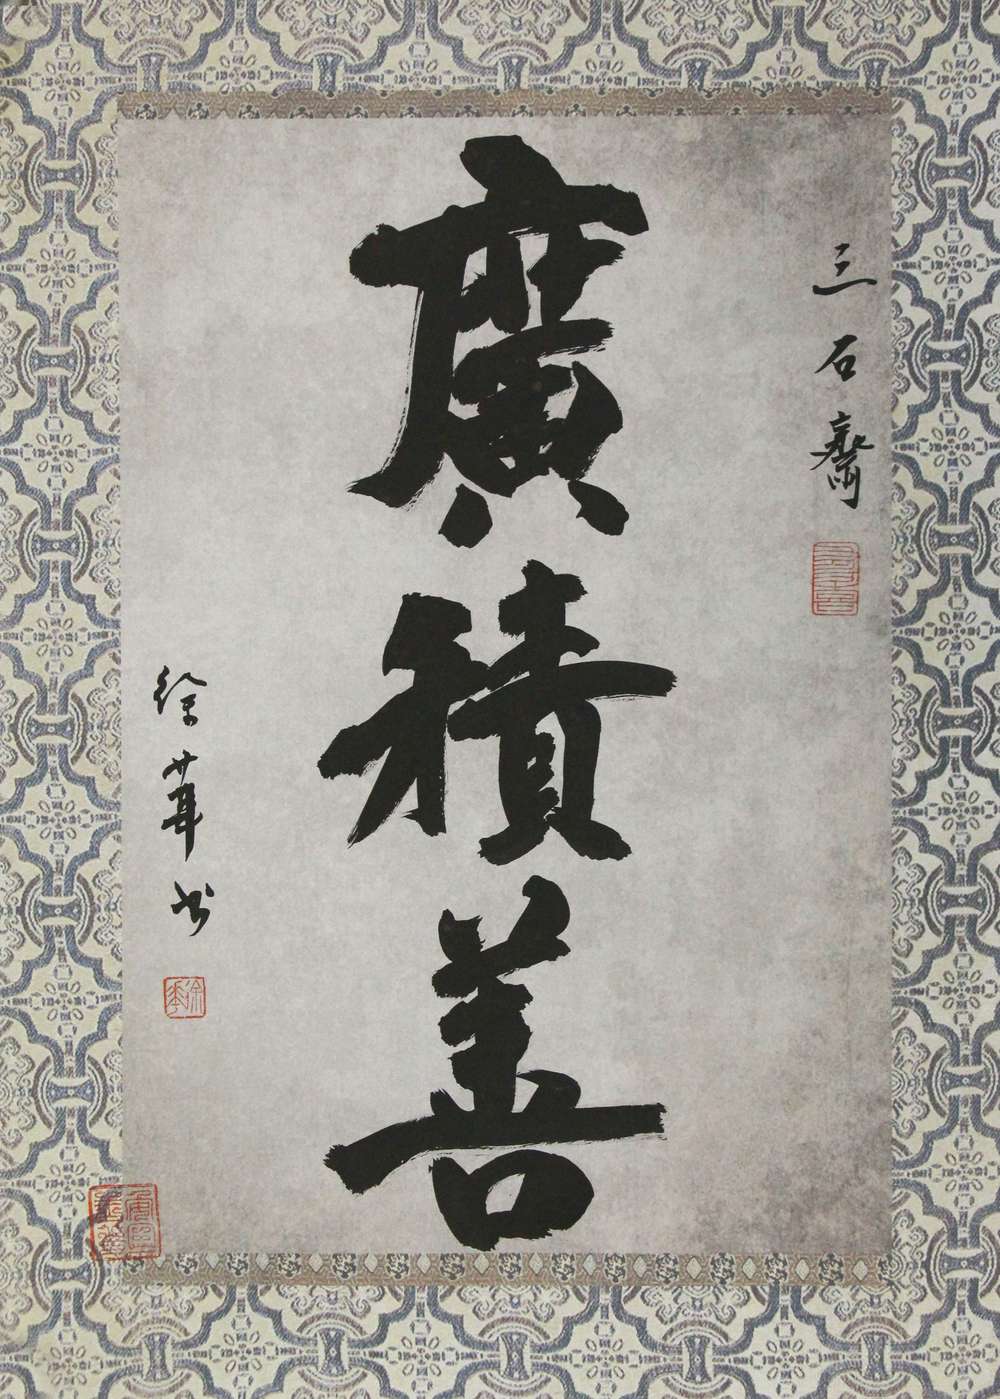 三石齋
廣積善
徐華書
徐華